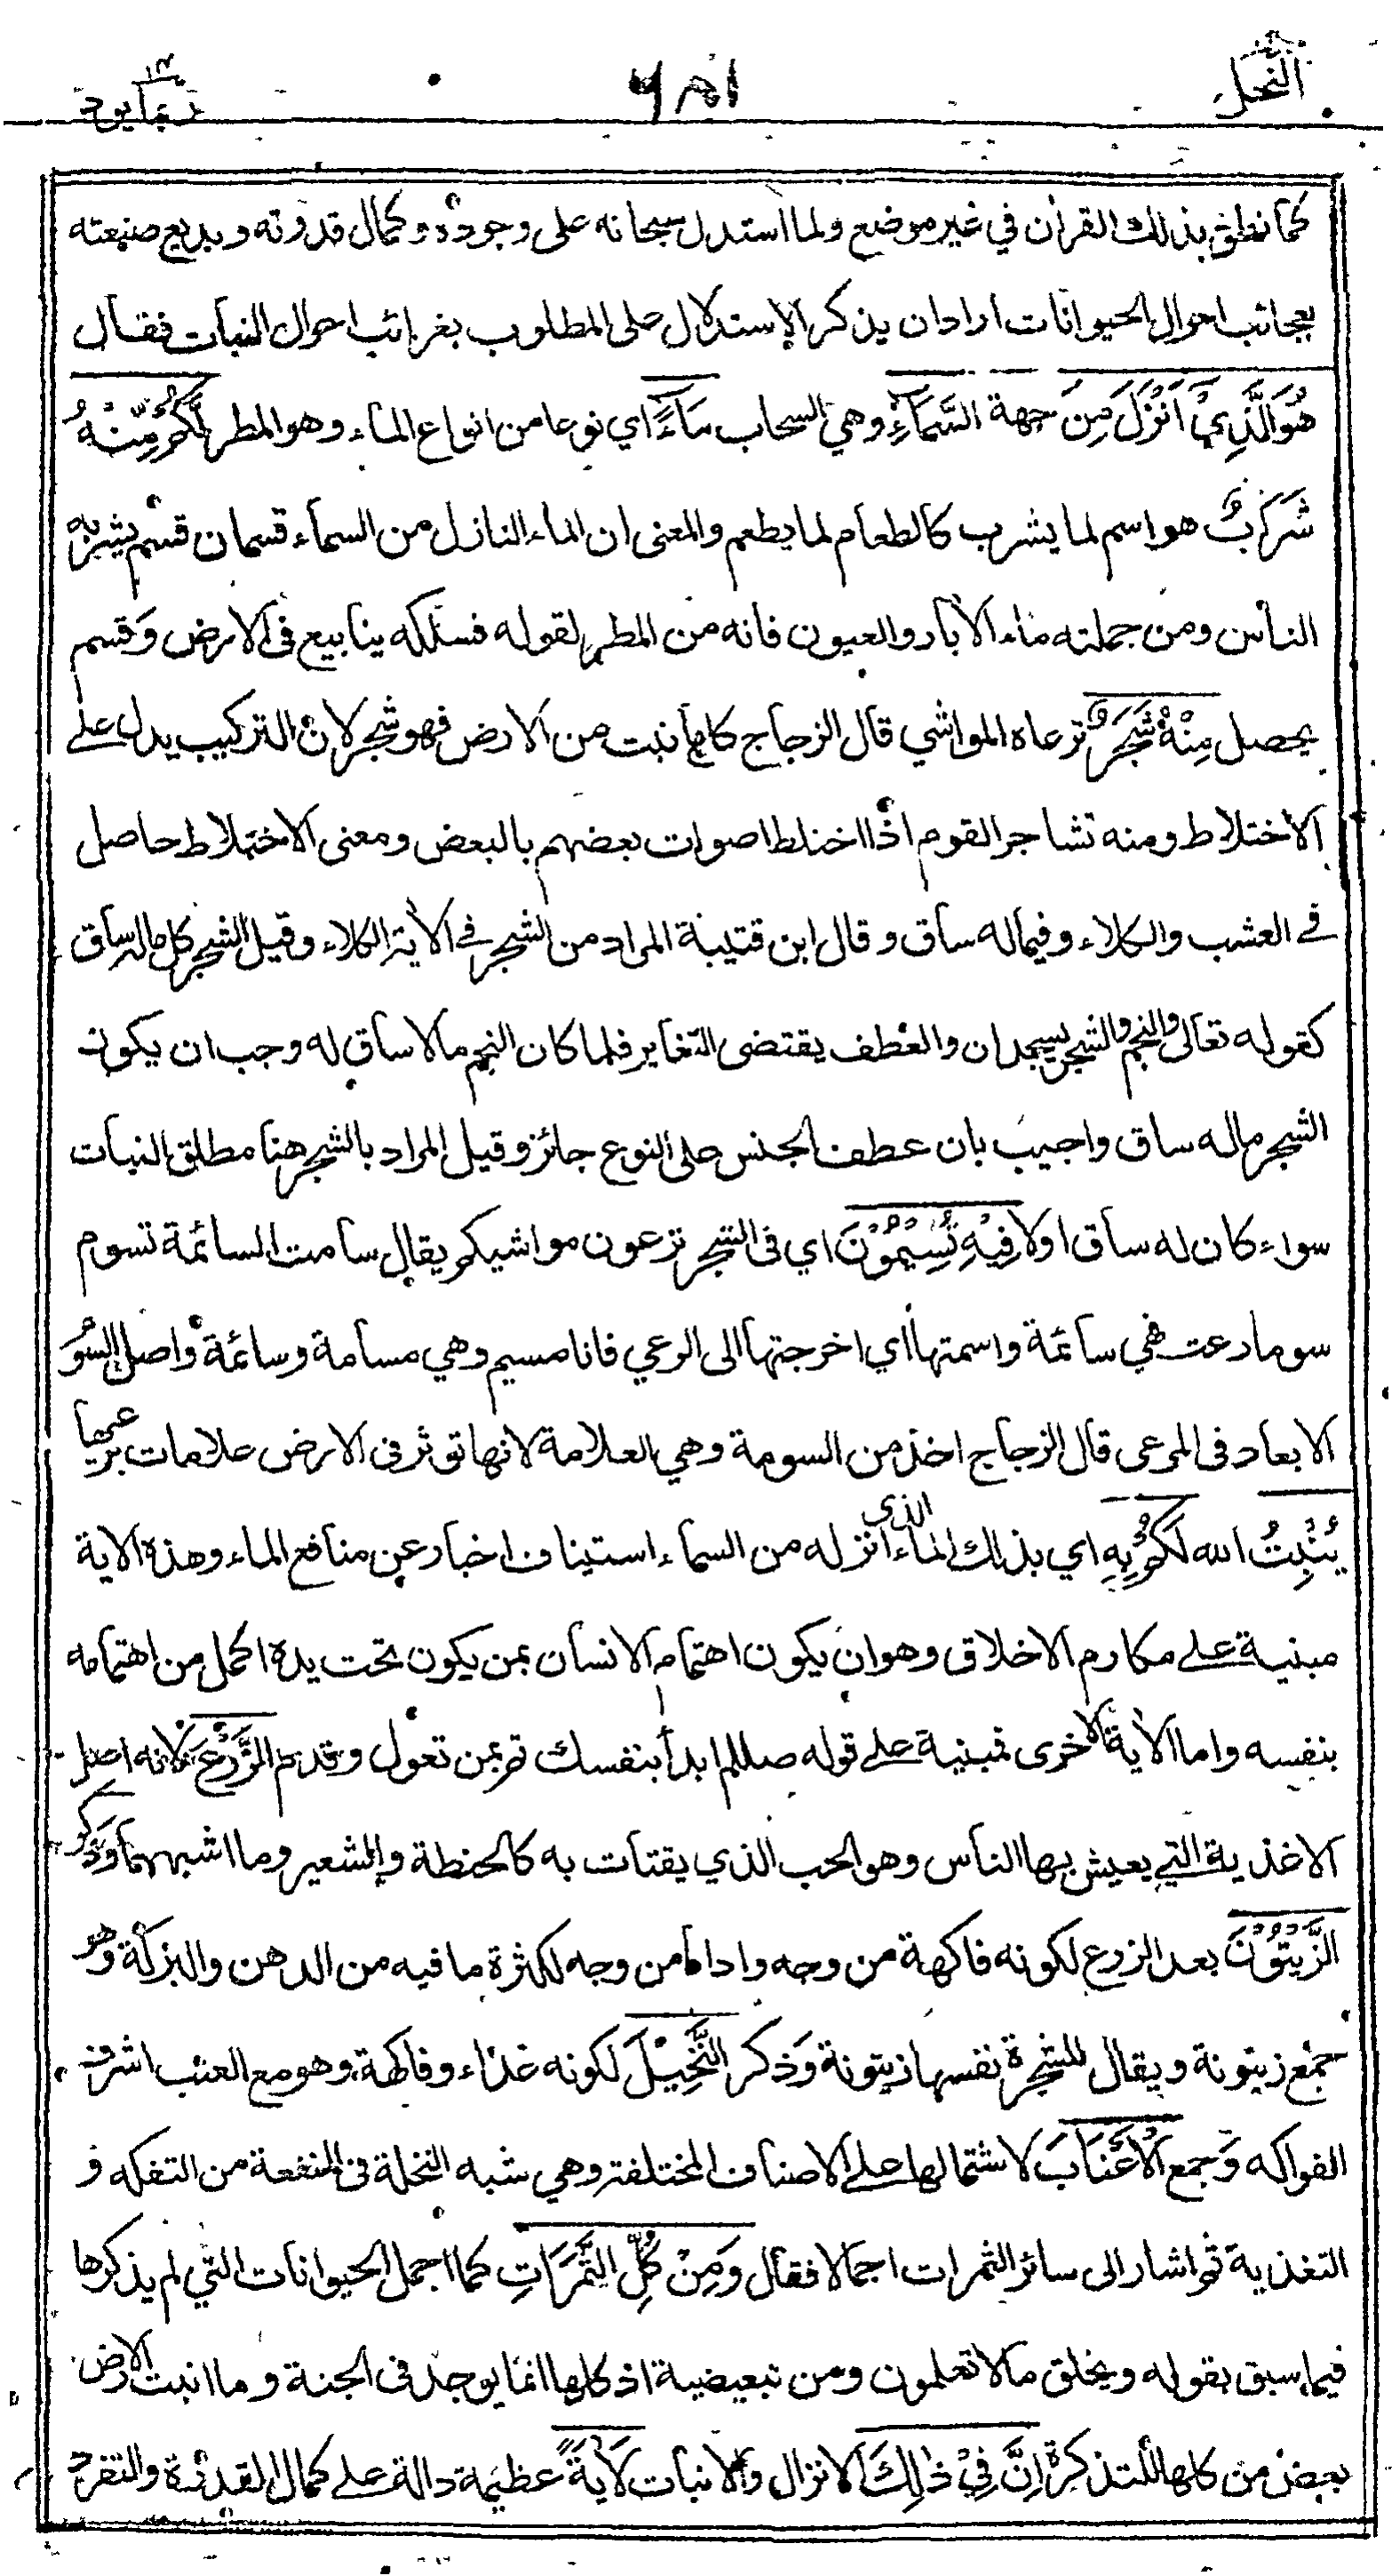 النحل ٦٥١ ربما ١٤
كما نطق بذلك القرأن في غير موضع ولما استدل سبحانه على وجوده وكمال قدرته وبديع صنيعته
بعجائب احوال الحيوانات اراد ان يذكر الاستدلال على المطلوب بغرائب احوال النبات فقال
هُوَ الَّذِيْ اَنْزَلَ مِنَ جهة السَّمَاءِ وهي السحاب مَاءً اي نوعا من انواع الماء وهو المطر لَكُمْ مِّنْهُ
شَرَابٌ هو اسم لما يشرب كالطعام لما يطعم والمعنى ان الماء النازل من السماء قسمان قسم يشربه
الناس ومن جملته ماء الأبار والعيون فانه من المطر لقوله فسلكه ينابيع فى الارض وقسم
يحصل مِنْهُ شَجَرٌ ترعاه المواشي قال الزجاج كل ما نبت من الارض فهو شجر لان التركيب يدل على
الاختلاط ومنه تشاجر القوم اذا اختلط اصوات بعضهم بالبعض ومعنى الاختلاط حاصل
في العشب والكلاء وفيما له ساق وقال ابن قتيبة المراد من الشجر في الأية الكلاء وقيل الشجر كل ماله ساق
كقوله تعالى والنجم والشجر يسجدان والعطف يقتضى التغاير فلما كان النجم مالا ساق له وجب ان يكون
الشجر ماله ساق واجيب بان عطف الجنس على النوع جائز وقيل المراد بالشجر هنا مطلق النبات
سواء كان له ساق اولا فِيْهِ تُسِيْمُوْنَ اي فى الشجر ترعون مواشيكم يقال سامت السائمة تسوم
سوما رعت فهي سائمة واسمتها اي اخرجتها الى الرعي فانا مسيم وهي مسامة وسائمة واصل السَّوْ
الابعاد فى المرعى قال الزجاج اخذ من السومة وهي العلامة لانها تؤثر فى الارض علامات برعيها
يُنْبِتُ الله لَكُمْ بِهِ اي بذلك الماء الذى انزله من السماء استيناف اخبار عن منافع الماء وهذه الاية
مبنية على مكارم الاخلاق وهو ان يكون اهتمام الانسان بمن يكون تحت يده اكمل من اهتمامه
بنفسه واما الأية الاخرى فمبنية على قوله صللم ابدأ بنفسك ثم بمن تعول وقدم الزَّرْعَ لانه اصل
الاغذية التي يعيش بها الناس وهو الحب الذي يقتات به كالحنطة والشعير وما اشبههما وَذكر
الزَّيْتُوْنَ بعد الزرع لكونه فاكهة من وجه واداما من وجه لكثرة ما فيه من الدهن والبركة وهو
جمع زيتونة ويقال للشجرة نفسها زيتونة وَذكر النَّخِيْلَ لكونه غذاء وفاكهة وهو مع العنب اشرف
الفواكه وَجمع الْاَعْنَابَ لاشتمالها على الاصناف المختلفة وهي شبه النخلة فى المنفعة من التفكه و
التغذية ثم اشار الى سائر الثمرات اجمالا فقال وَمِنْ كُلِّ الثَّمَرَاتِ كما اجمل الحيوانات التي لم يذكرها
فيما سبق بقوله ويخلق مالا تعلمون ومن تبعيضية اذ كلها انما يوجد فى الجنة وما انبت الارض
بعض من كلها للتذكرة اِنَّ فِيْ ذٰلِكَ الانزال والانبات لَاٰيَةً عظيمة دالة على كمال القدرة والتفرد